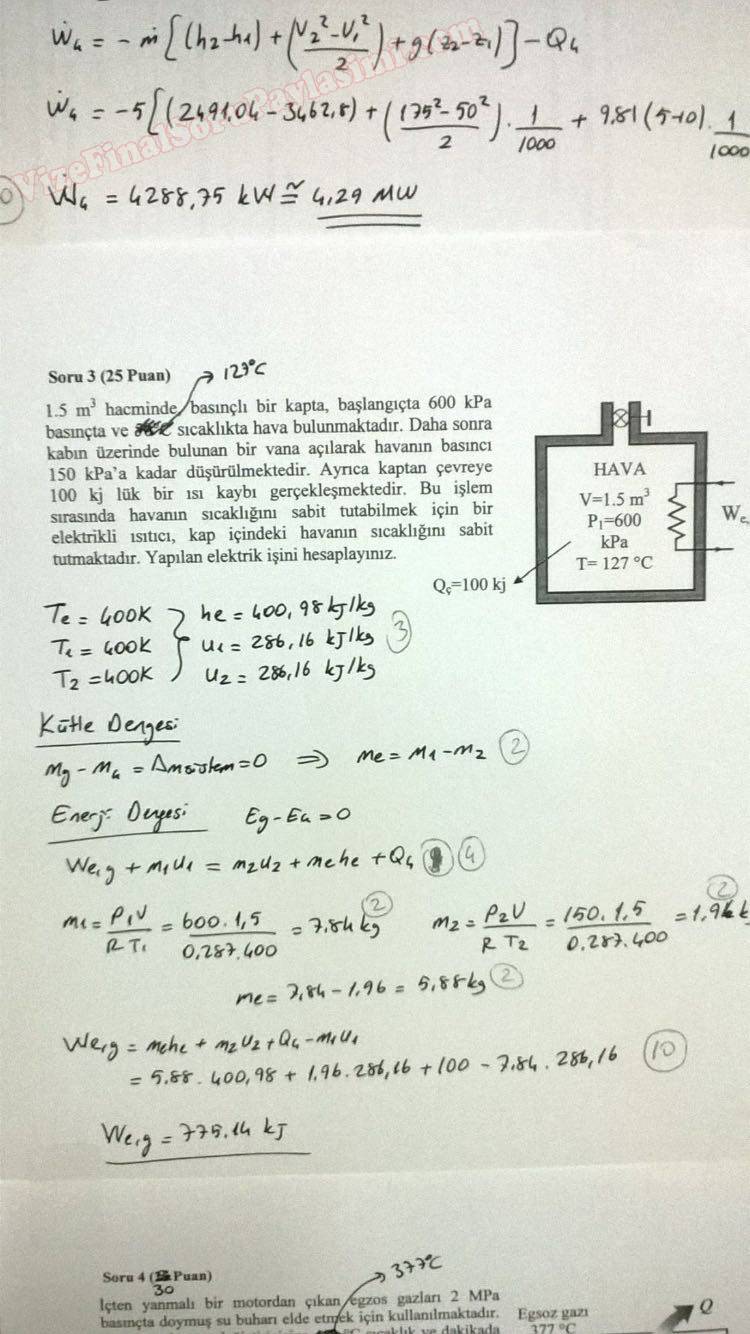 Ẇ₄ = - ṁ [(h₂-h₁) + (V₂² - V₁² / 2) + g(z₂-z₁)] - Q₄
Ẇ₄ = -5[(2491,04 - 3462,8) + (175² - 50² / 2) . 1/1000 + 9.81 (5-10) . 1/1000
Ẇ₄ = 4288,75 kW ≅ 4,29 MW
VizeFinalSoruPaylasimi.com
Soru 3 (25 Puan) → 127°C
1.5 m³ hacminde basınçlı bir kapta, başlangıçta 600 kPa
basınçta ve sıcaklıkta hava bulunmaktadır. Daha sonra
kabın üzerinde bulunan bir vana açılarak havanın basıncı
150 kPa'a kadar düşürülmektedir. Ayrıca kaptan çevreye
100 kj lük bir ısı kaybı gerçekleşmektedir. Bu işlem
sırasında havanın sıcaklığını sabit tutabilmek için bir
elektrikli ısıtıcı, kap içindeki havanın sıcaklığını sabit
tutmaktadır. Yapılan elektrik işini hesaplayınız.
HAVA
V=1.5 m³
P₁=600
kPa
T= 127 °C
We,
Qç=100 kj
Te = 400K he = 400,98 kj/kg
T₁ = 400K u₁ = 286,16 kJ/kg (3)
T₂ = 400K u₂ = 286,16 kJ/kg
Kütle Dengesi
mg - mç = Δmsistem = 0 ⇒ me = m₁ - m₂ (2)
Enerji Dengesi Eg - Eç = 0
We,g + m₁u₁ = m₂u₂ + mehe + Qç (4)
m₁ = P₁V / R T₁ = 600.1,5 / 0,287.400 = 7.84 kg (2) m₂ = P₂V / R T₂ = 150.1,5 / 0.287.400 = 1,96 k (2)
me = 7,84 - 1,96 = 5,88 kg (2)
We,g = mehe + m₂u₂ + Qç - m₁u₁
= 5.88 . 400,98 + 1,96 . 286,16 + 100 - 7.84 . 286,16 (10)
We,g = 775.14 kJ
Soru 4 ( Puan) → 377°C
30
İçten yanmalı bir motordan çıkan egzos gazları 2 MPa
basınçta doymuş su buharı elde etmek için kullanılmaktadır.
sıcaklık ve dakikada
Egsoz gazı
377 °C
Q